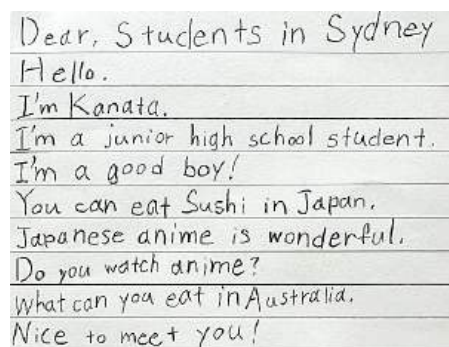 Dear, Students in Sydney
Hello.
I'm Kanata.
I'm a junior high school student.
I'm a good boy!
You can eat Sushi in Japan.
Japanese anime is wonderful.
Do you watch anime?
What can you eat in Australia.
Nice to meet you!